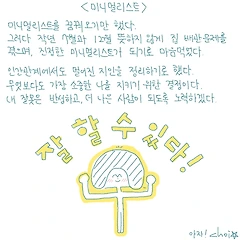 <미니멀리스트>
미니멀리스트를 꿈꿔오기만 했다.
그러다 작년 7월과 12월 뜻하지 않게 집 배관문제를
겪으며, 진정한 미니멀리스트가 되기로 마음먹었다.
인간관계에서도 멀어진 지인을 정리하기로 했다.
무엇보다도 가장 소중한 나를 지키기 위한 결정이다.
내 잘못은 반성하고, 더 나은 사람이 되도록 노력하겠다.
잘 할 수 있다!
아자! choi